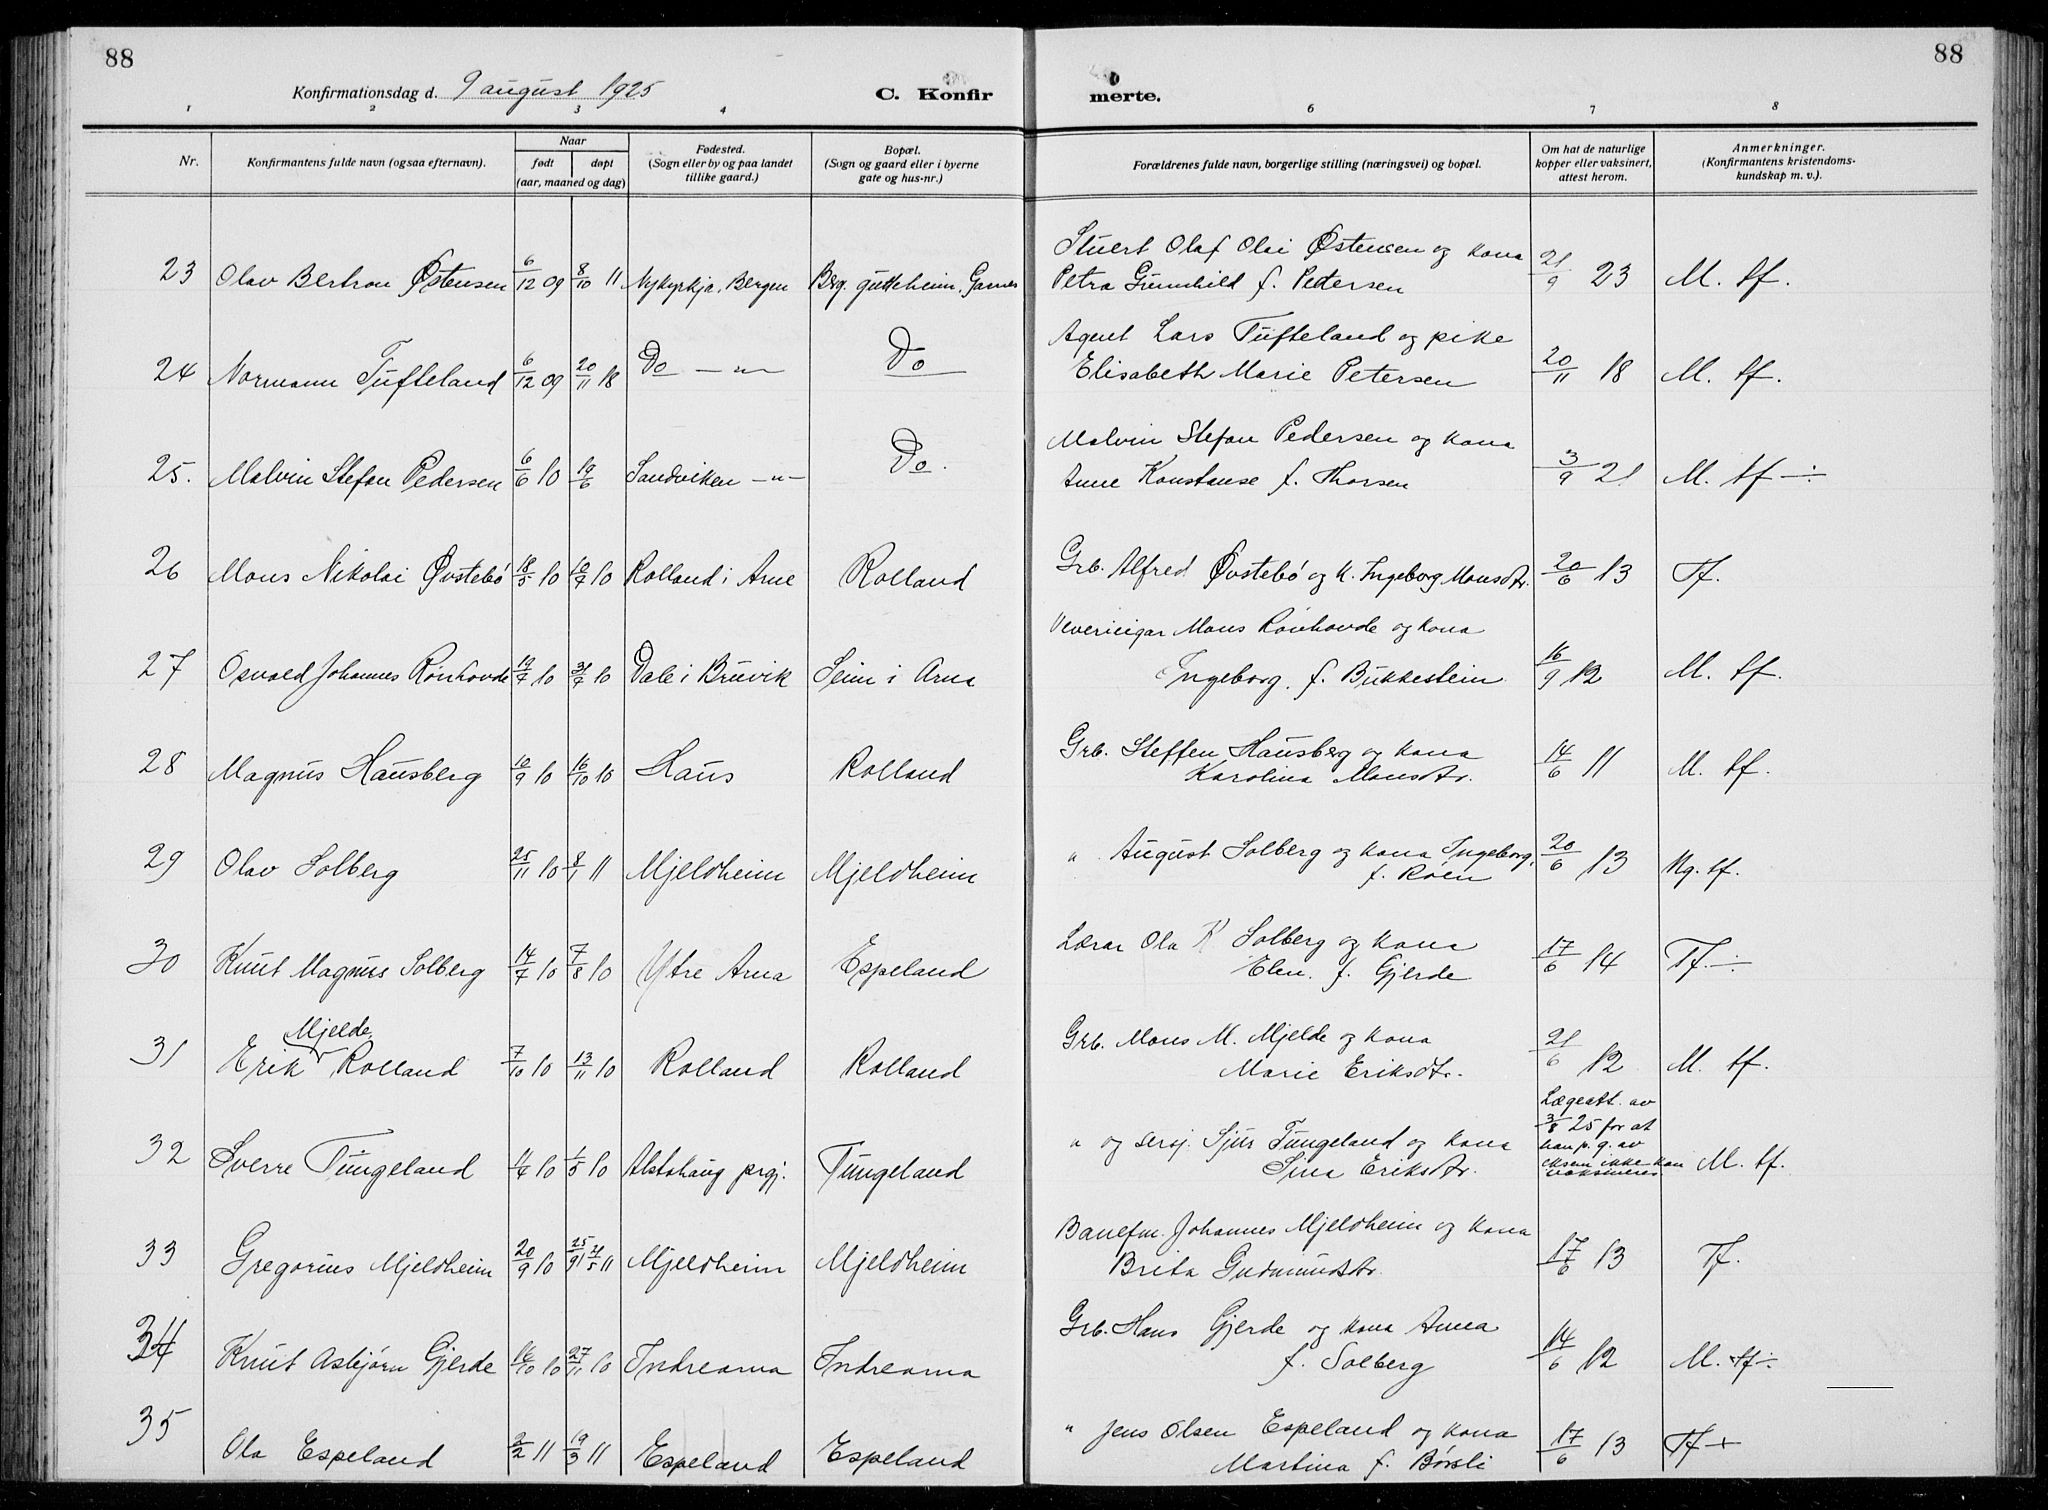 88
88
Konfirmationsdag d. 9 august 1925
C. Konfir
merte.
1 2 3 4 6 7 8
Nr.
Konfirmantens fulde navn (ogsaa efternavn).
Naar
født
døpt
(aar, maaned og dag)
Fødested.
(Sogn eller by og paa landet
tillike gaard.)
Bopæl.
(Sogn og gaard eller i byerne
gate og hus-nr.)
Forældrenes fulde navn, borgerlige stilling (næringsvei) og bopæl.
Om hat de naturlige
kopper eller vaksinert,
attest herom.
Anmerkninger.
(Konfirmantens kristendoms-
kundskap m. v.).
Stuert Olaf Olai Østensen og kona
23 Olav Bertron Østensen 6/12 09 8/10 11 Nykyrkja, Bergen Brg. gutteheim, Garnes Petra Gunnhild f. Pedersen 21/9 23 M. tf.
Agent Lars Tufteland og pike
24 Normann Tufteland 6/12 09 20/11 18 Do —"— Do Elisabeth Marie Petersen 20/11 18 M. tf.
Malvin Stefan Pedersen og kona
25. Malvin Stefan Pedersen 6/6 10 19/6 Sandviken —"— Do. Anne Konstanse f. Thorsen 3/9 21 M. tf ÷
26 Mons Nikolai Øvstebø 18/5 10 10/7 10 Rolland i Arne Rolland Grb. Alfred Øvstebø og k. Ingeborg Monsdtr. 20/6 13 Tf.
Vevericigar Mons Rønhovde og kona
27 Osvald Johannes Rønhovde 19/7 10 31/7 10 Dale i Bruvik Seim i Arna Ingeborg. f. Bukkestein 16/9 12 M. tf.
Grb. Steffen Hausberg og kona
28 Magnus Hausberg 10/9 10 16/10 10 Haus Rolland Karolina Monsdtr. 14/6 11 M. tf.
" August Solberg og kona Ingeborg,
29 Olav Solberg 25/11 10 8/1 11 Mjeldheim Mjeldheim f. Røen 20/6 13 Ng. tf.
Lærar Ola K Solberg og kona
30 Knut Magnus Solberg 14/7 10 7/8 10 Ytre Arna Espeland Elen. f. Gjerde 17/6 14 Tf. ÷
Mjelde
Grb. Mons M. Mjelde og kona
31 Erik Rolland 7/10 10 13/11 10 Rolland Rolland Marie Eriksdtr. 21/6 12 M. tf.
Lægeatt. av
3/8 25 for at
han p. g. av
eksem ikke kan
vaksineres
" og sersj. Sjur Tungeland og kona
32 Sverre Tungeland 11/4 10 1/5 10 Alstahaug prgj. Tungeland Sina Eriksdtr. M. tf.
Banefm. Johannes Mjeldheim og kona
33 Gregorius Mjeldheim 20/9 10 25/9 21/5 11 Mjeldheim Mjeldheim Brita Gudmundsdtr. 17/6 13 Tf.
Grb. Hans Gjerde og kona Anna
34 Knut Asbjørn Gjerde 16/10 10 27/11 10 Indrearna Indrearna f. Solberg 14/6 12 M. tf ÷.
" Jens Olsen Espeland og kona
35 Ola Espeland 2/2 11 19/3 11 Espeland Espeland Martina f. Børsli 17/6 13 Tf +